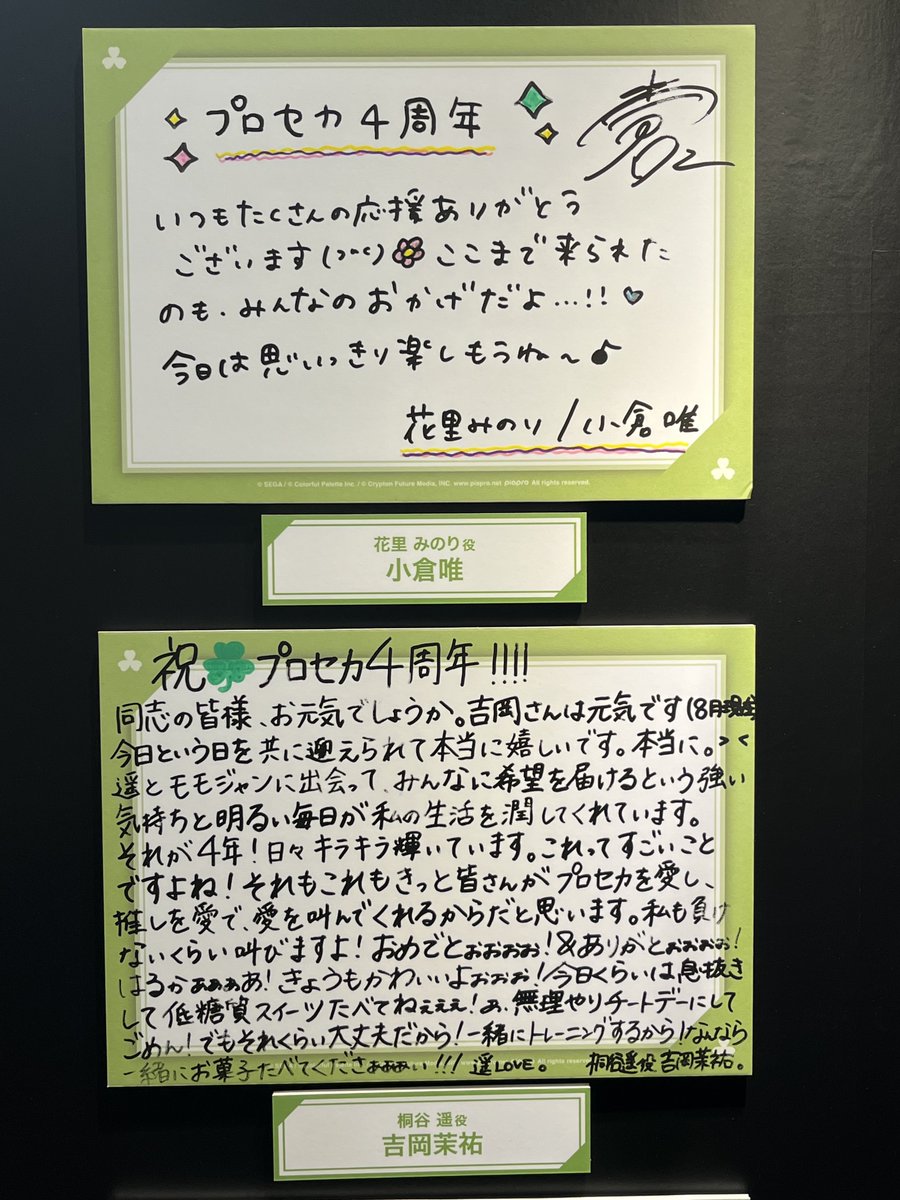 プロセカ4周年
いつもたくさんの応援ありがとう
ございます
ここまで来られた
のも、みんなのおかげだよ…!!
今日は思いっきり楽しもうね〜♪
花里みのり/小倉唯
© SEGA / © Colorful Palette Inc. / © Crypton Future Media, INC. www.piapro.net piapro All rights reserved.
花里 みのり役
小倉唯
祝☘プロセカ4周年!!!!
同志の皆様、お元気でしょうか。吉岡さんは元気です(8月現在)
今日という日を共に迎えられて本当に嬉しいです。本当に。><
遥とモモジャンに出会って、みんなに希望を届けるという強い
気持ちと明るい毎日が私の生活を潤してくれています。
それが4年!日々キラキラ輝いています。これってすごいこと
ですよね!それもこれもきっと皆さんがプロセカを愛し、
推しを愛で、愛を叫んでくれるからだと思います。私も負け
ないくらい叫びますよ!おめでとぉぉぉぉ!&ありがとぉぉぉぉ!
はるかぁぁぁあ!きょうもかわいいよぉぉぉ!今日くらいは息抜き
して低糖質スイーツたべてねぇぇぇ!あ、無理やりチートデーにして
ごめん!でもそれくらい大丈夫だから!一緒にトレーニングするから!なんなら
一緒にお菓子たべてくださぁぁぁい!!!遥LOVE。 桐谷遥役 吉岡茉祐。
桐谷 遥役
吉岡茉祐